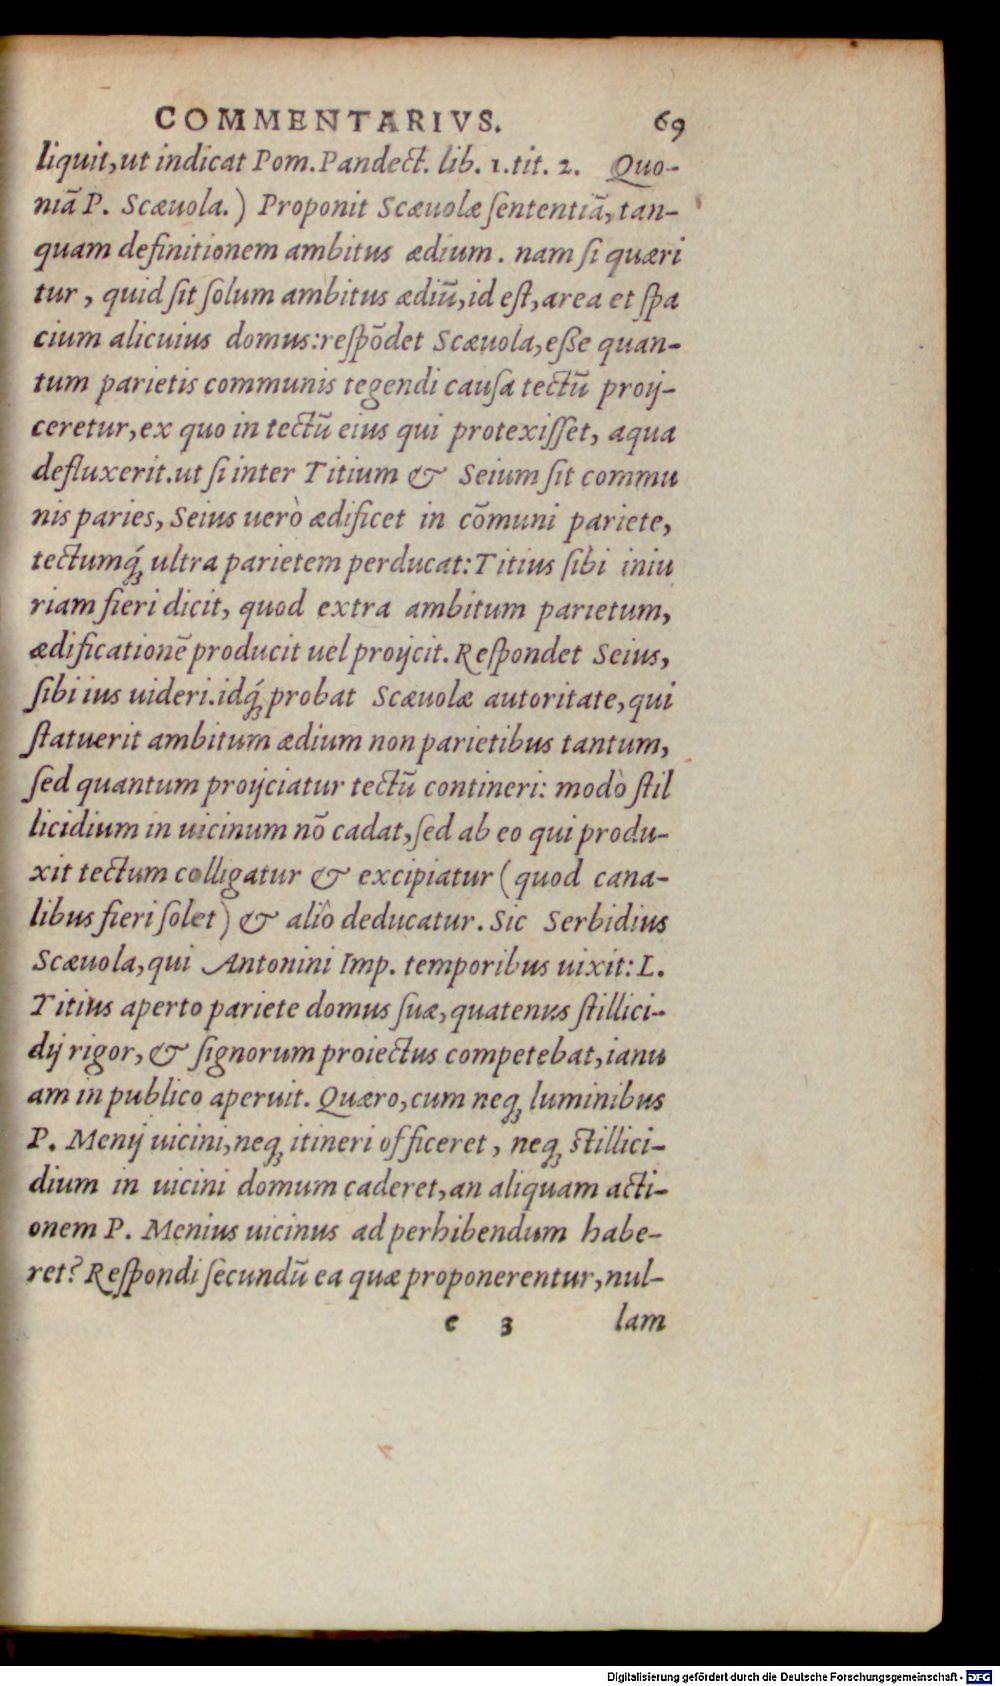 COMMENTARIVS. 69
liquit, ut indicat Pom. Pandect. lib. 1. tit. 2. Quo-
niā P. Scæuola.) Proponit Scæuolæ ſententiā, tan-
quam definitionem ambitus ædium. nam ſi quæri
tur, quid ſit ſolum ambitus ædiū, id eſt, area et ſpa
cium alicuius domus: reſpōdet Scæuola, eſſe quan-
tum parietis communis tegendi cauſa tectū proij-
ceretur, ex quo in tectū eius qui protexiſſet, aqua
defluxerit. ut ſi inter Titium & Seium ſit commu
nis paries, Seius uerò ædificet in cōmuni pariete,
tectumq́; ultra parietem perducat: Titius ſibi iniu
riam fieri dicit, quod extra ambitum parietum,
ædificationē producit uel proijcit. Reſpondet Seius,
ſibi ius uideri. idq́; probat Scæuolæ autoritate, qui
ſtatuerit ambitum ædium non parietibus tantum,
ſed quantum proijciatur tectū contineri: modò ſtil
licidium in uicinum nō cadat, ſed ab eo qui produ-
xit tectum colligatur & excipiatur (quod cana-
libus fieri ſolet) & aliò deducatur. Sic Serbidius
Scæuola, qui Antonini Imp. temporibus uixit: L.
Titius aperto pariete domus ſuæ, quatenus ſtillici-
dij rigor, & ſignorum proiectus competebat, ianu
am in publico aperuit. Quæro, cum neq; luminibus
P. Menij uicini, neq; itineri officeret, neq; ſtillici-
dium in uicini domum caderet, an aliquam acti-
onem P. Menius uicinus ad perhibendum habe-
ret? Reſpondi ſecundū ea quæ proponerentur, nul-
e 3 lam
Digitalisierung gefördert durch die Deutsche Forschungsgemeinschaft - DFG